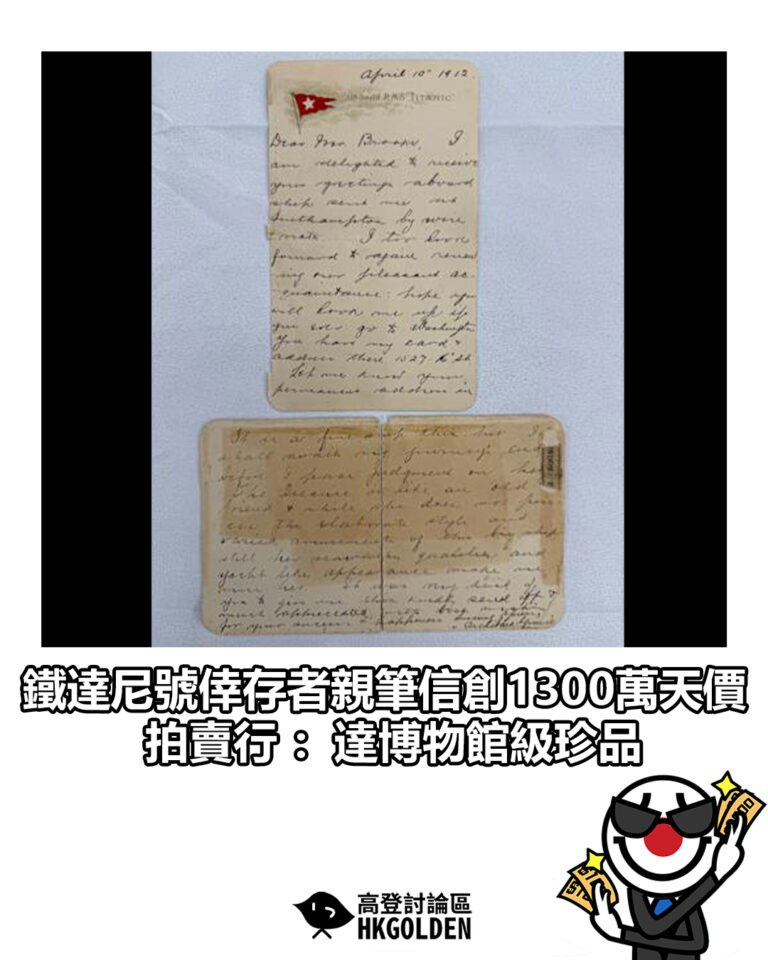 April 10th 1912.
On board R.M.S. "TITANIC"
Dear Mr. I
am delighted to receive
your greetings aboard
ship sent me at
Southampton by
I too look
forward to again renew
ing our pleasant ac
quaintance: hope you
will look me up if
you ever go to Washington
You have my card &
address there 1527 K St
Let me know your
permanent address in
It is a fine ship but I
shall await my journeys end
before I pass judgment on her
The is like an old
friend & while she does not
the elaborate style and
varied amusements of this big ship
still her qualities and
yacht like appearance make me
miss her. It was very kind of
you to give me this kindly send off &
much appreciated with best wishes
for your success & happiness
Archibald Gracie
鐵達尼號倖存者親筆信創1300萬天價
拍賣行：達博物館級珍品
高登討論區
HKGOLDEN